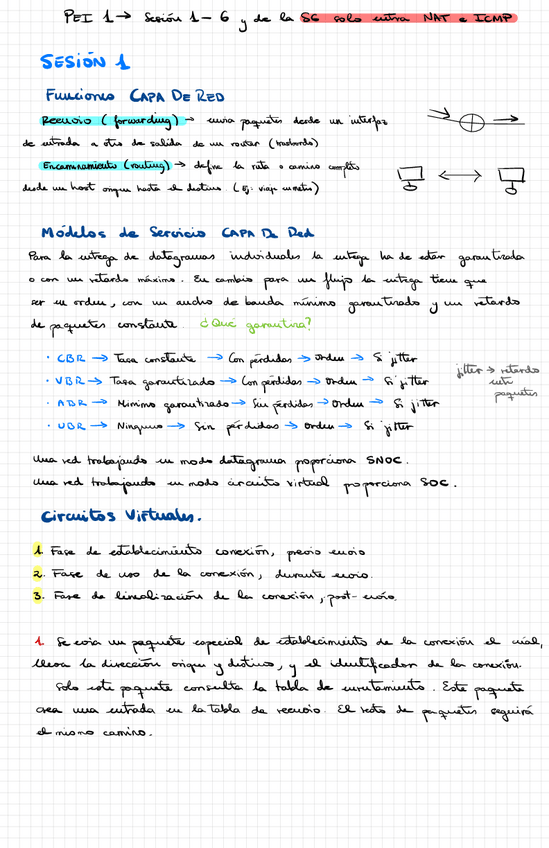 PEI 1 → Sesión 1 - 6 y de la S6 solo entra NAT e ICMP
SESIÓN 1
Funciones CAPA DE RED
Reenvío (forwarding) → envia paquetes desde un interfaz
de entrada a otro de salida de un router (trasbordo)
Encaminamiento (routing) → define la ruta o camino completo
desde un host origen hasta el destino. (Ej: viaje en metro)
Módelos de Servicio CAPA De Red
Para la entrega de datagramas individuales la entrega ha de estar garantizada
o con un retardo máximo. En cambio para un flujo la entrega tiene que
ser en orden, con un ancho de banda mínimo garantizado y un retardo
de paquetes constante. ¿Qué garantiza?
· CBR → Tasa constante → Con pérdidas → orden → Si jitter
· VBR → Tasa garantizado → Con perdidas → Orden → Si jitter
· ABR → Minimo garantizado → Sin perdidas → Orden → Si jitter
· UBR → Ninguno → Sin pérdidas → Orden → Si jitter
jitter → retardo
entre
paquetes
Una red trabajando en modo datagrama proporciona SNOC.
Una red trabajando en modo circuito virtual proporciona SOC.
Circuitos Virtuales.
1. Fase de establecimiento conexión, previo envio
2. Fase de uso de la conexión, durante envio.
3. Fase de finalización de la conexión, post-envio.
1. Se envia un paquete especial de establecimiento de la conexión el cual,
lleva la dirección origen y destino, y el identificador de la conexión.
Solo este paquete consulta la tabla de enrutamiento. Este paquete
crea una entrada en la tabla de reenvio. El resto de paquetes seguirá
el mismo camino.